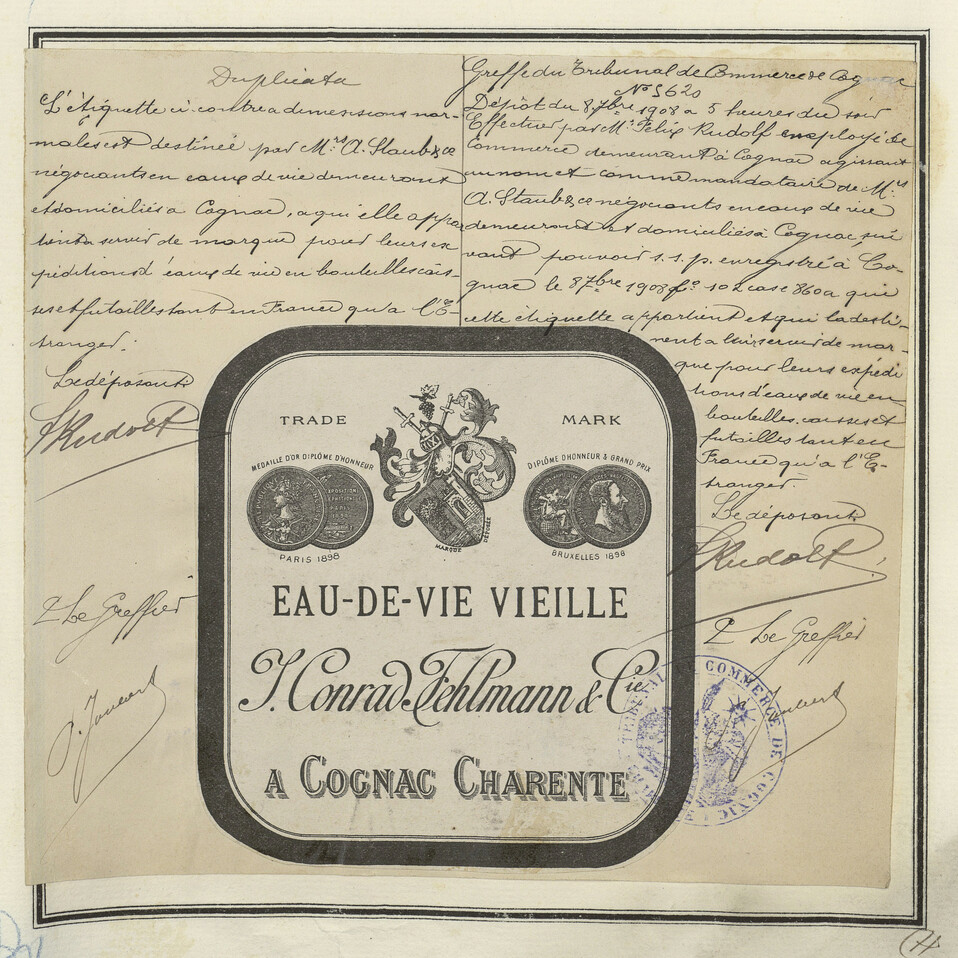 Duplicata
L'étiquette ci contre a dimensions nor-
males est destinée par Mrs A. Staub & ce
négociants en eaux de vie demeurant
et domiciliés à Cognac, a qui elle appar
tient a servir de marque pour leurs ex
péditions d'eaux de vie en bouteilles cais-
ses et futailles tant en France qu'a l'E-
tranger.
Le déposant
F Rudolf
P Le Greffier
Greffe du Tribunal de Commerce de Cognac
No 5620
Dépôt du 8 7bre 1908 a 5 heures du soir
Effectué par Mr Felix Rudolf employé de
Commerce demeurant à Cognac agissant
au nom et comme mandataire de Mrs
A. Staub & ce négociants en eaux de vie
demeurant et domiciliés à Cognac, sui
vant pouvoir s. s. p. enregistré à Co-
gnac le 8 7bre 1908 fo 10 case 860 a qui
cette étiquette appartient et qui la desti-
nent a leur servir de mar-
que pour leurs expédi
tions d'eaux de vie en
bouteilles caisses et
futailles tant en
France qu'a l'E-
tranger.
Le déposant
F Rudolf
P Le Greffier
TRADE MARK
MÉDAILLE D'OR DIPLÔME D'HONNEUR
DIPLÔME D'HONNEUR & GRAND PRIX
PARIS 1898
MARQUE DÉPOSÉE
BRUXELLES 1898
EAU-DE-VIE VIEILLE
J. Conrad Fehlmann & Cie
A COGNAC CHARENTE
TRIBUNAL DE COMMERCE DE COGNAC